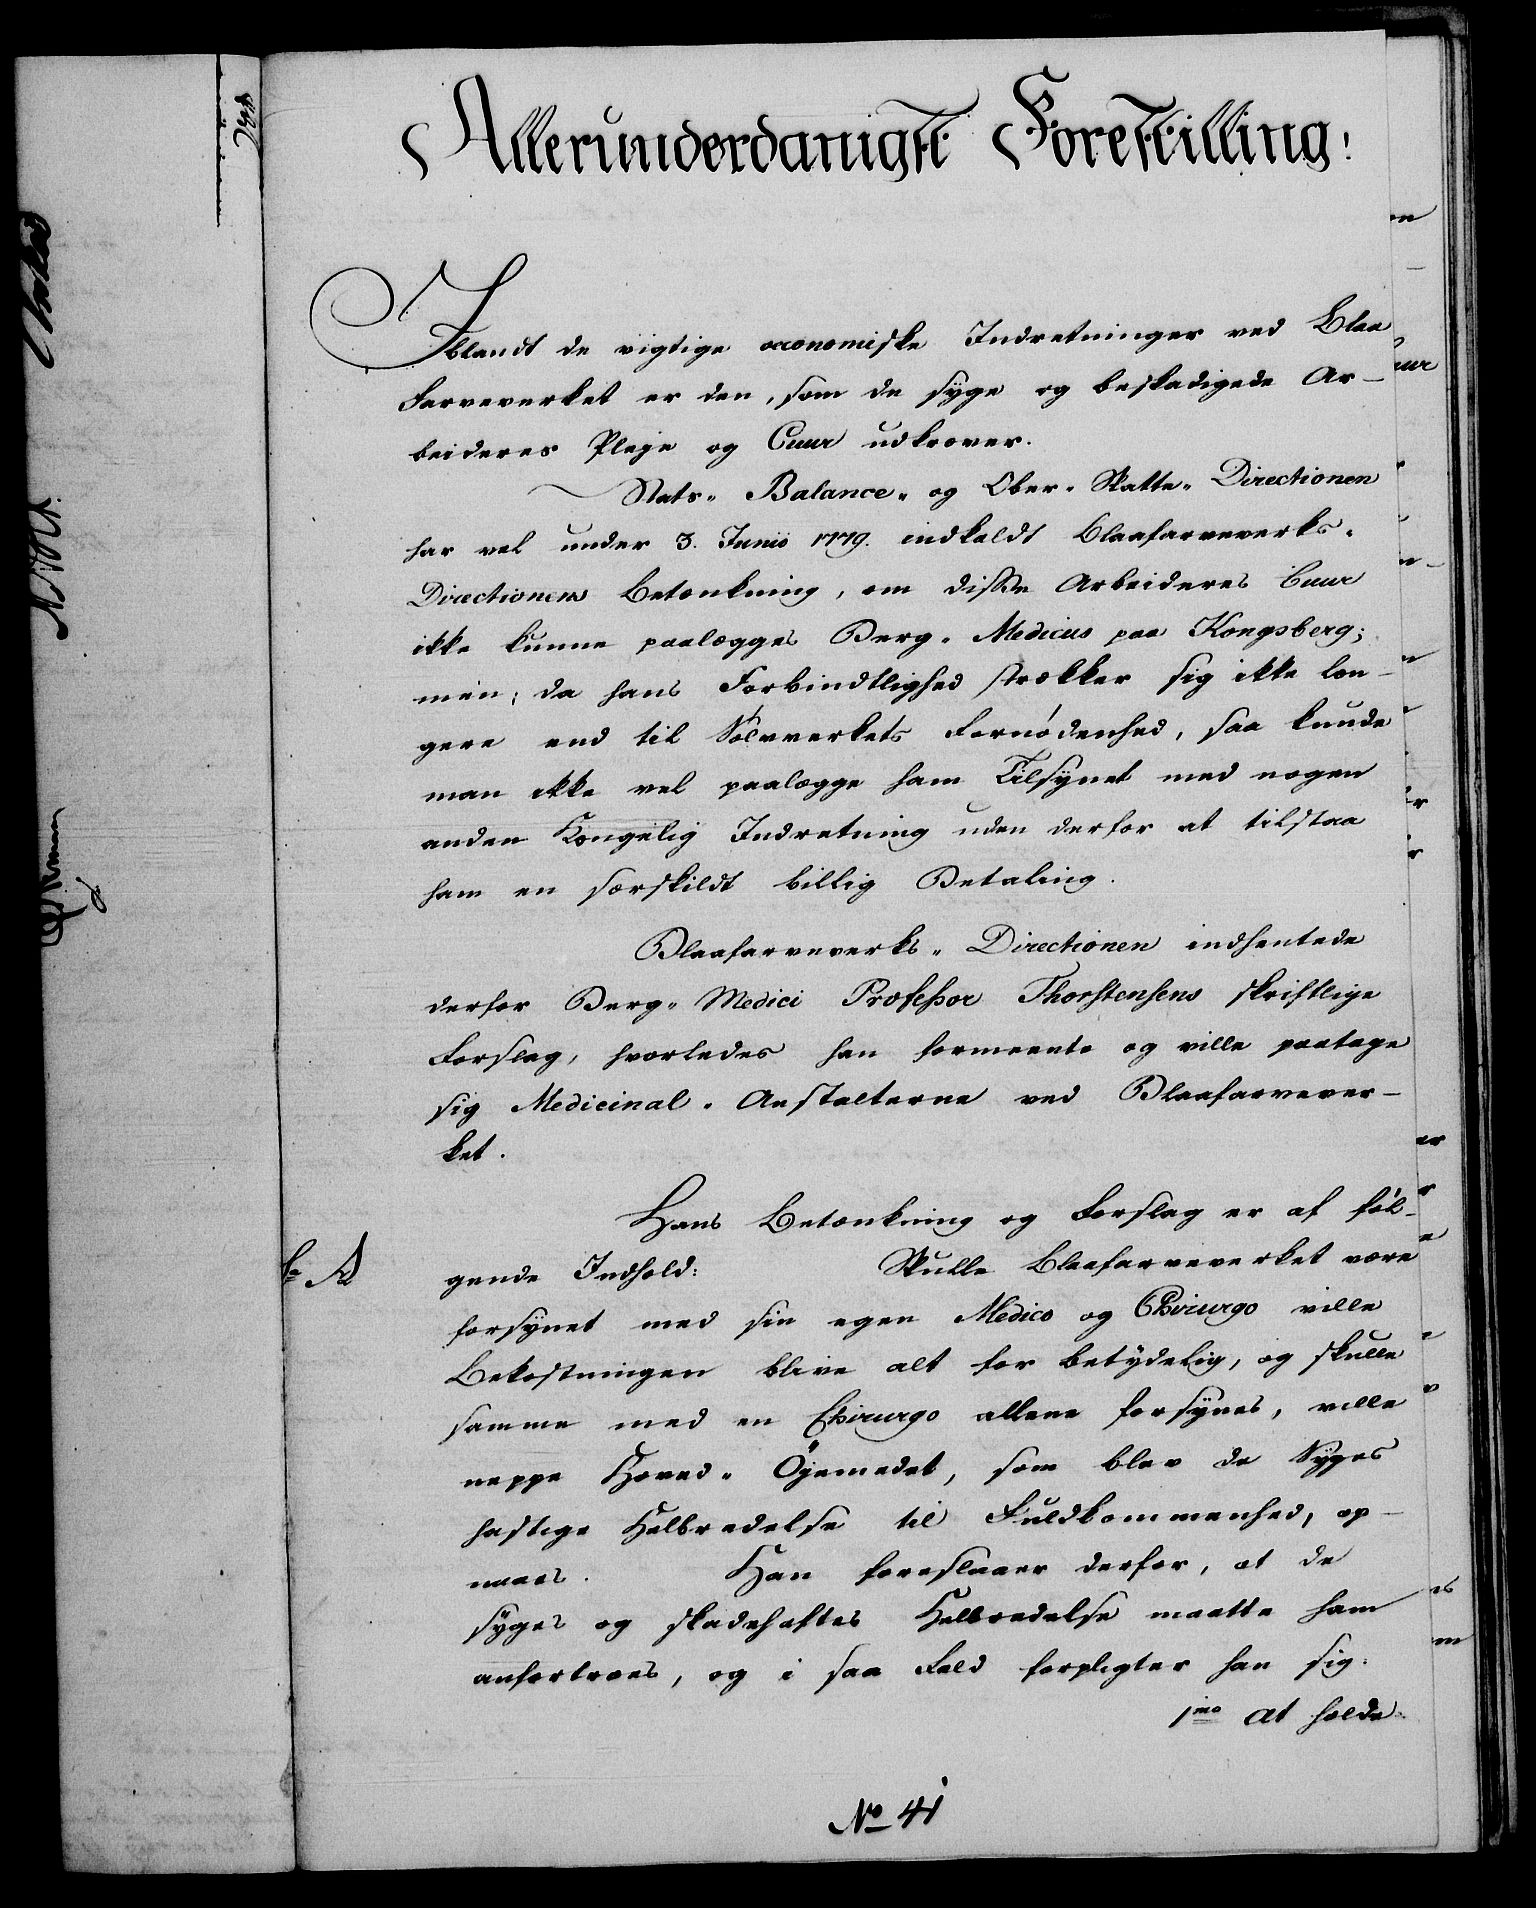 Allerunderdanigst Forestilling!
Iblandt de vigtige oeconomiske Indretninger ved Blaa
Farveverket er den, som de syge og beskadigede Ar-
beideres Pleje og Cuur udkræver.
Stats- Balance- og Over-Skatte-Directionen
har vel under 3. Junii 1779. indkaldt Blaafarveverks-
Directionens Betænkning, om disse Arbeideres Cuur
ikke kunne paalægges Berg-Medicus paa Kongsberg;
men, da hans Forbindtlighed strækker sig ikke læn-
gere end til Sølvverkets Fornødenhed, saa kunde
man ikke vel paalægge ham Tilsynet med nogen
anden Kongelig Indretning uden derfor at tilstaa
ham en særskildt billig Betaling.
Blaafarveverks-Directionen indhentede
derfor Berg-Medici Professor Thorstensens skriftlige
Forslag, hvorledes han formeente og ville paatage
sig Medicinal-Anstalterne ved Blaafarvever-
ket.
Hans Betænkning og Forslag er af føl-
A gende Indhold: Skulle Blaafarveverket være
forsynet med sin egen Medico og Chirurgo ville
Bekostningen blive alt for betydelig, og skulle
samme med en Chirurgo allene forsynes, ville
neppe Hoved-Øjemedet, som blev de Syges
hastige Helbredelse til Fuldkommenhed, op-
naaes. Han foreslaaer derfor, at de
syges og skadehaftes Helbredelse maatte ham
anfortroes, og i saa Fald forpligter han sig.
1mo at holde
No 41